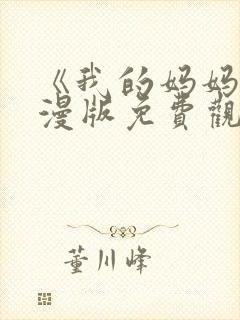 《我的妈妈
漫版免費觀
董川峰